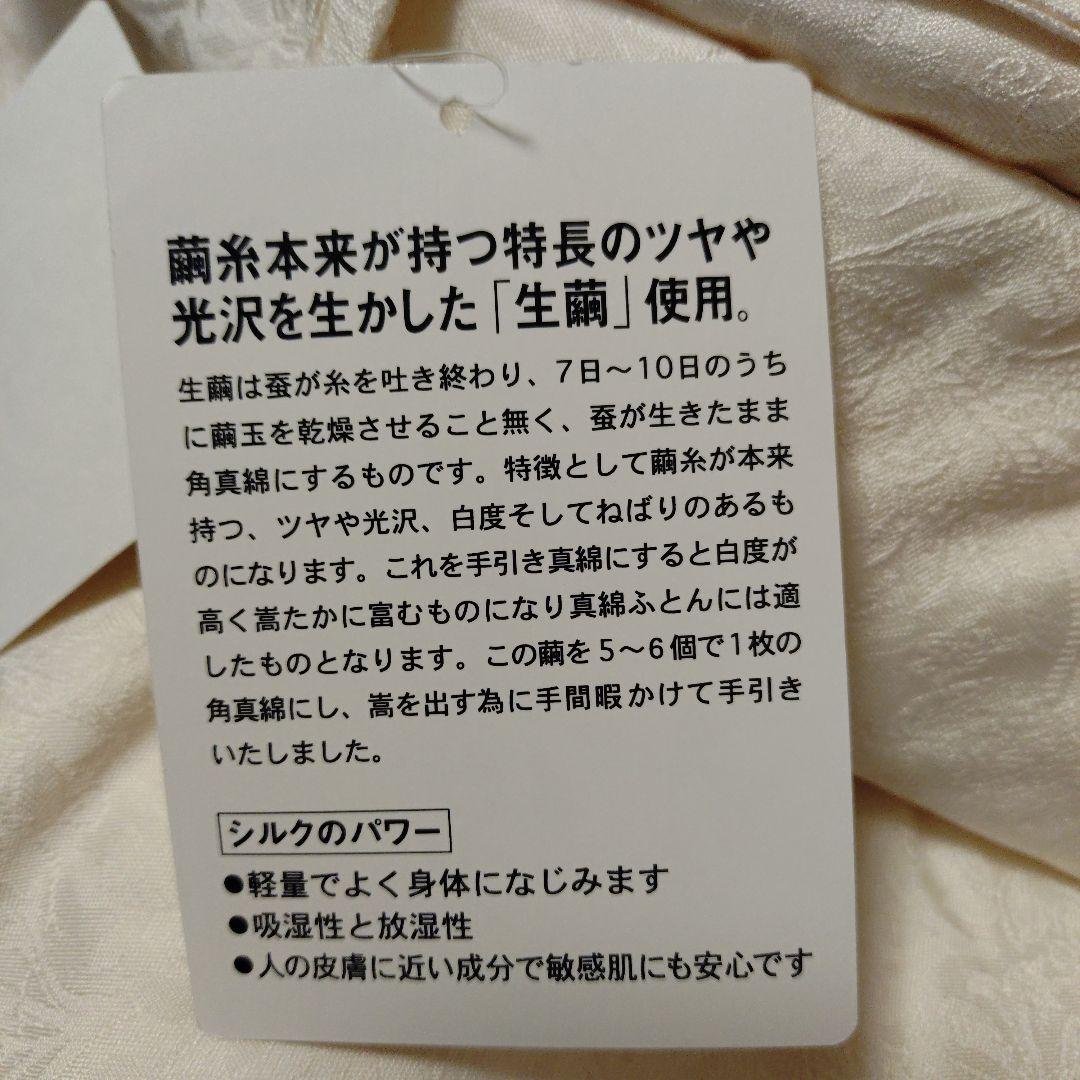 繭糸本来が持つ特長のツヤや
光沢を生かした「生繭」使用。
生繭は蚕が糸を吐き終わり、7日～10日のうち
に繭玉を乾燥させること無く、蚕が生きたまま
角真綿にするものです。特徴として繭糸が本来
持つ、ツヤや光沢、白度そしてねばりのあるも
のになります。これを手引き真綿にすると白度が
高く嵩たかに富むものになり真綿ふとんには適
したものとなります。この繭を5～6個で1枚の
角真綿にし、嵩を出す為に手間暇かけて手引き
いたしました。
シルクのパワー
●軽量でよく身体になじみます
●吸湿性と放湿性
●人の皮膚に近い成分で敏感肌にも安心です